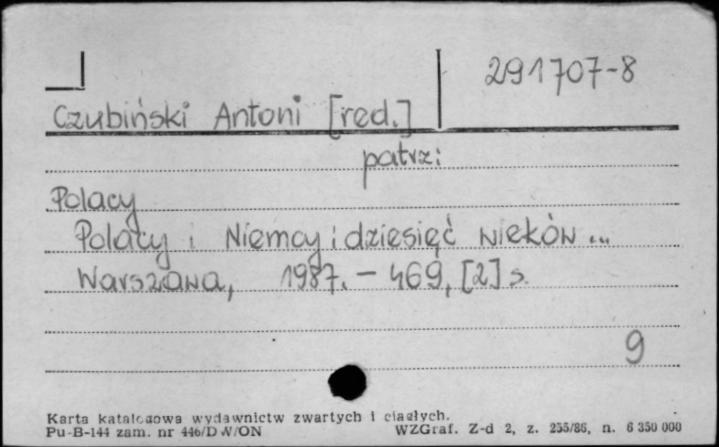 291707-8
Czubiński Antoni [red.]
patrz:
Polacy
Polacy i Niemcy : dziesięć wieków ...
Warszawa, 1987. – 469, [2] s.
9
Karta katalogowa wydawnictw zwartych i ciągłych.
Pu-B-144 zam. nr 446/D W/ON WZGraf. Z-d 2, z. 255/86, n. 6 350 000